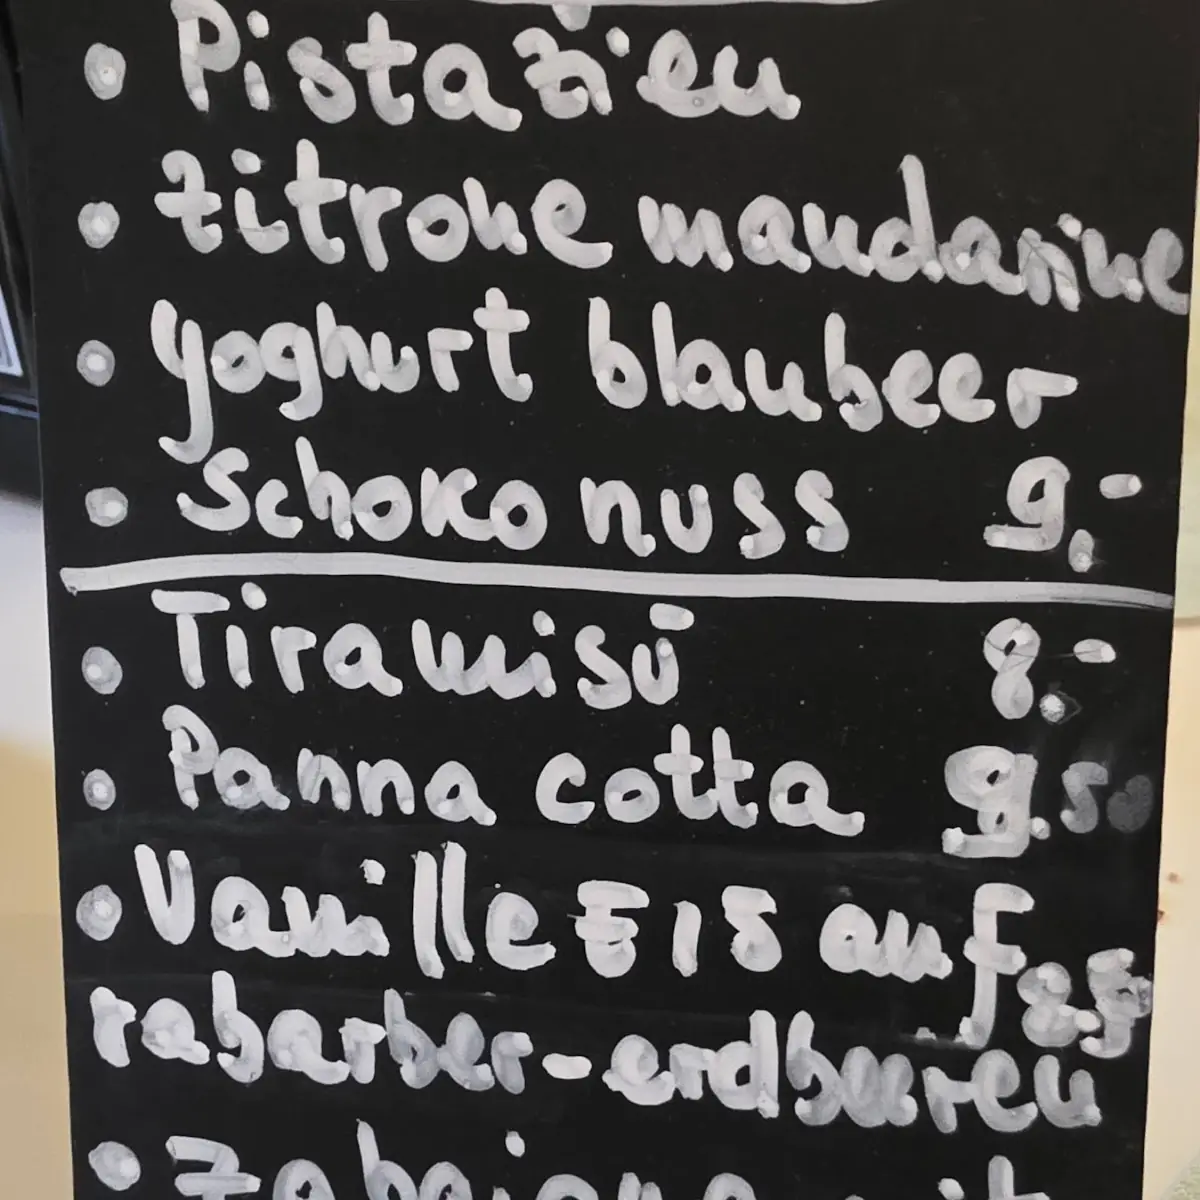 • Pistazien
• Zitrone mandarine
• Yoghurt blaubeer
• Schoko nuss 9.-
• Tiramisū 8.-
• Panna cotta 9.50
• Vanille EIS auf
rabarber-erdbeeren
• Zabaione mit